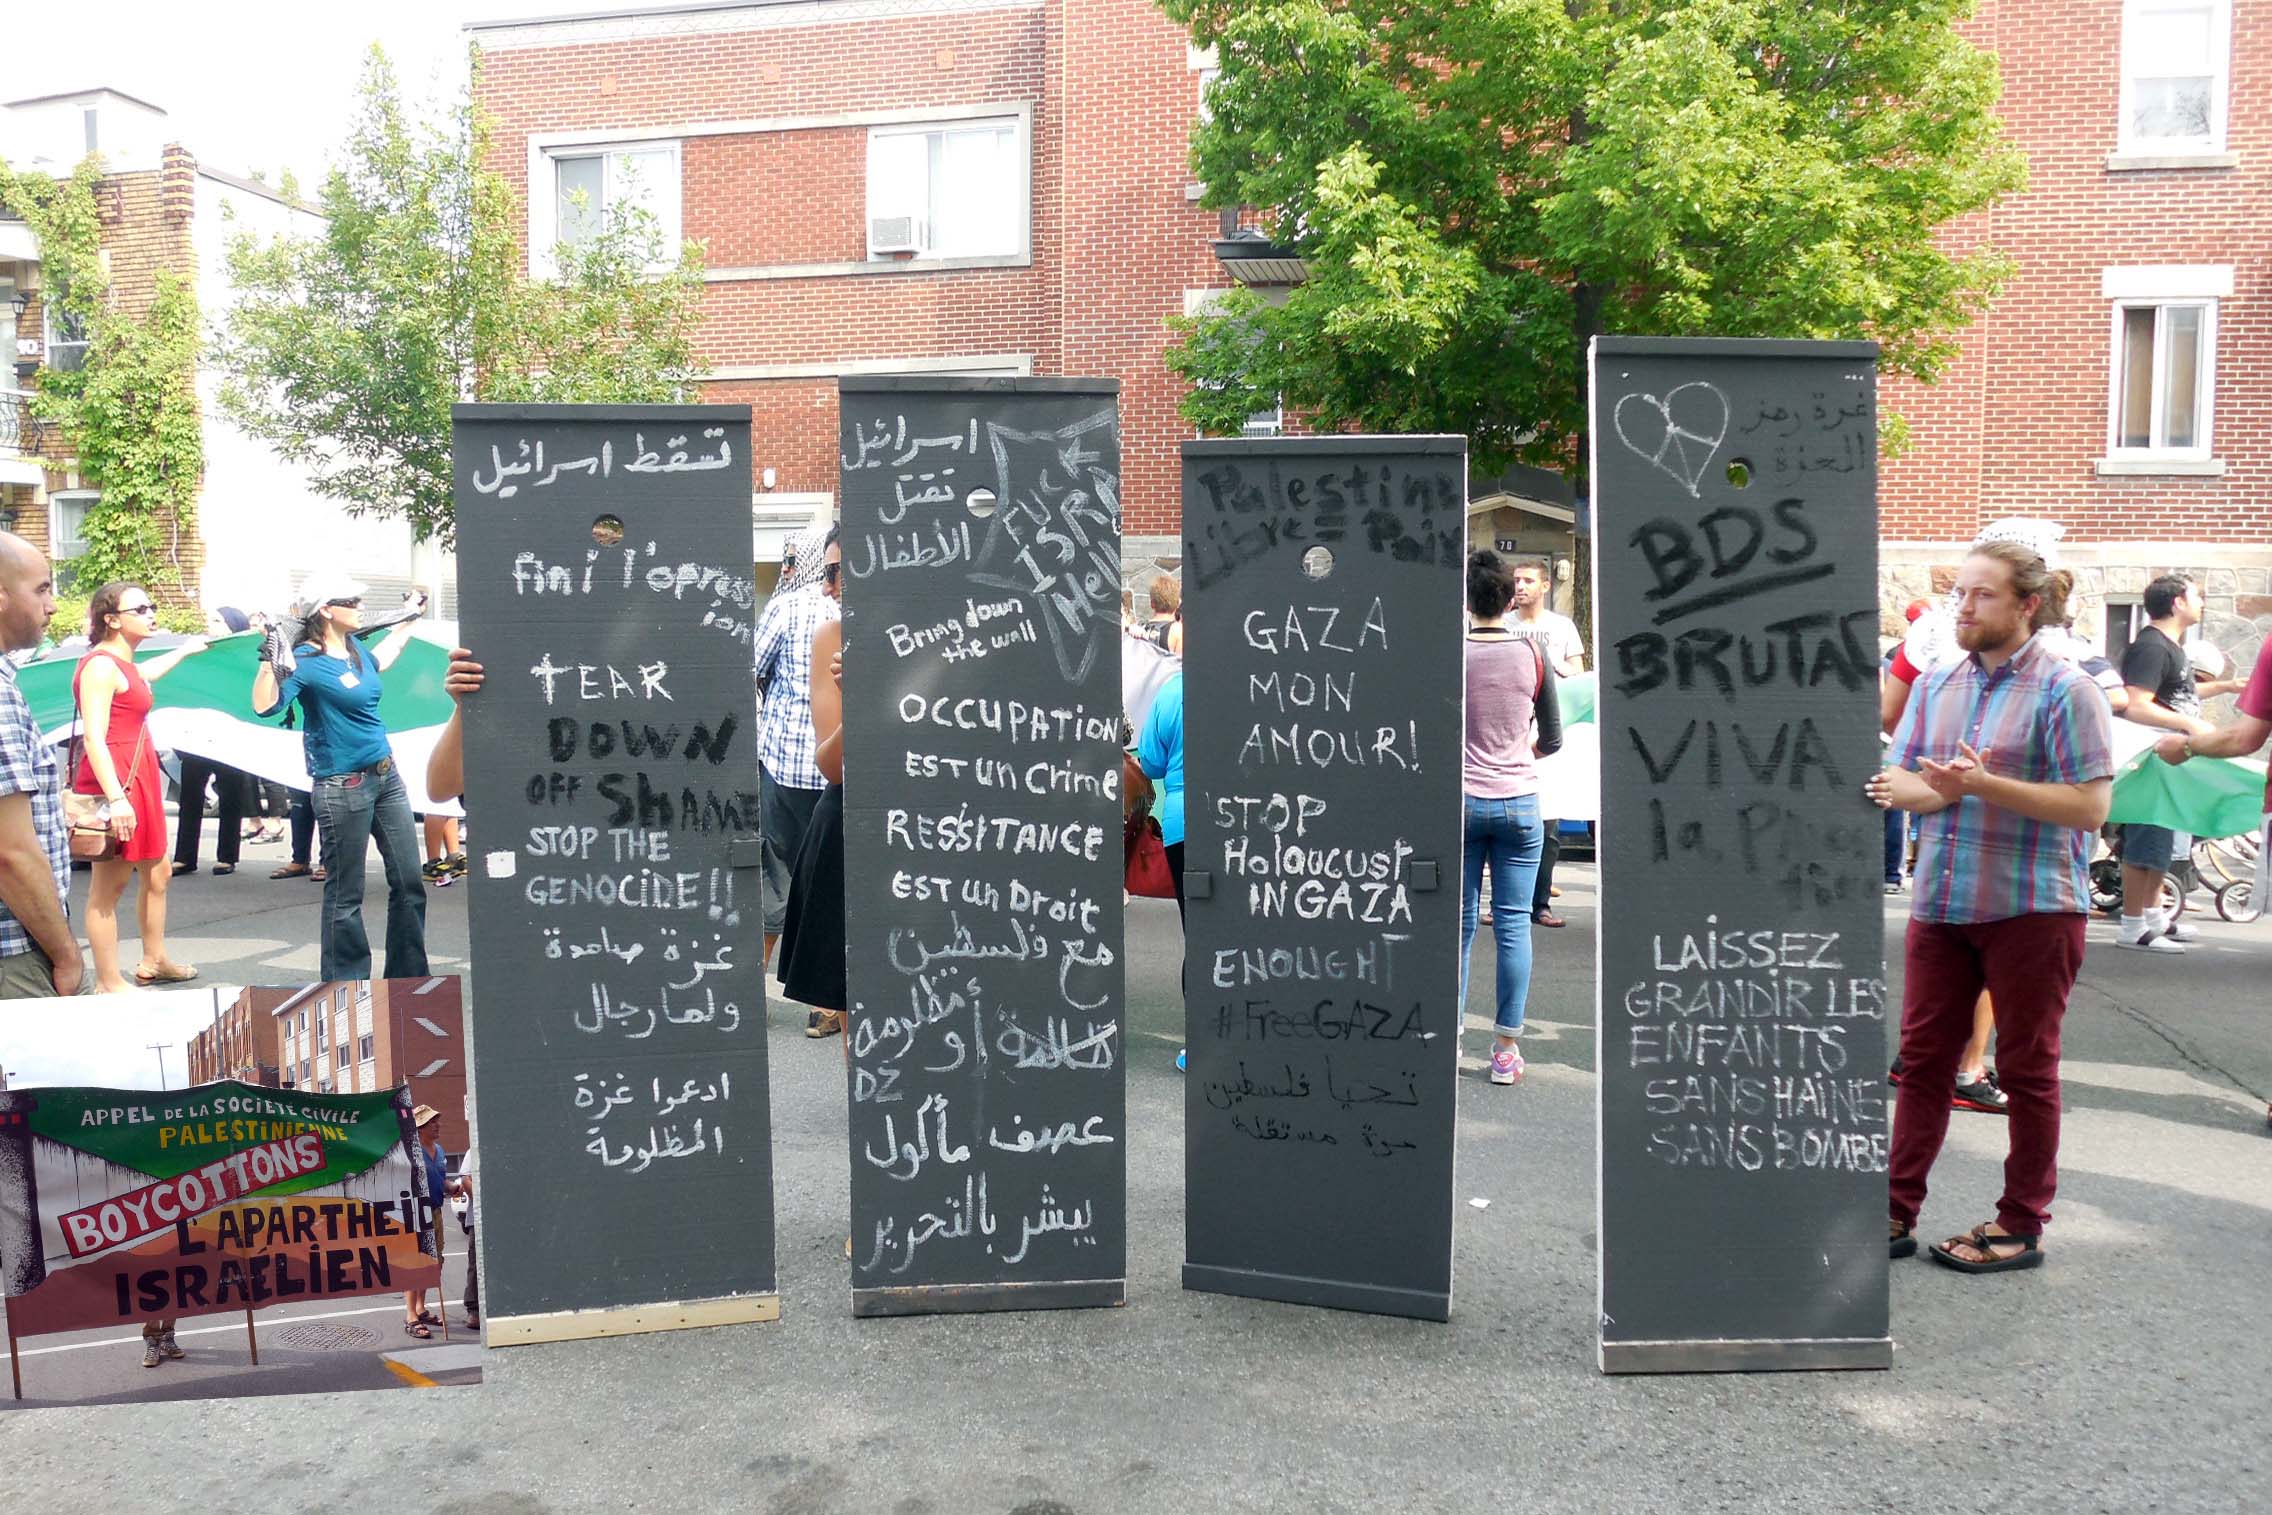 تسقط اسرائيل
fini l'opress
ion
TEAR
DOWN
OFF SHAME
STOP THE
GENOCIDE!!
غزة صامدة
ولها رجال
ادعوا غزة
المظلومة
اسرائيل
تقتل
الأطفال
FUCK
ISR
Hell
Bring down
the wall
OCCUPATION
EST un Crime
RESSITANCE
EST un Droit
مع فلسطين
مظلومة
أو
DZ
عصف مأكول
يبشر بالتحرير
Palestine
Libre = Paix
GAZA
MON
AMOUR!
STOP
Holoucust
IN GAZA
ENOUGHT
#FreeGAZA
تحيا فلسطين
حرة مستقلة
غزة رمز
العزة
BDS
BRUTAL
VIVA
la
LAISSEZ
GRANDIR LES
ENFANTS
SANS HAINE
SANS BOMBE
70
APPEL DE LA SOCIÉTÉ CIVILE
PALESTINIENNE
BOYCOTTONS
L'APARTHEID
ISRAÉLIEN